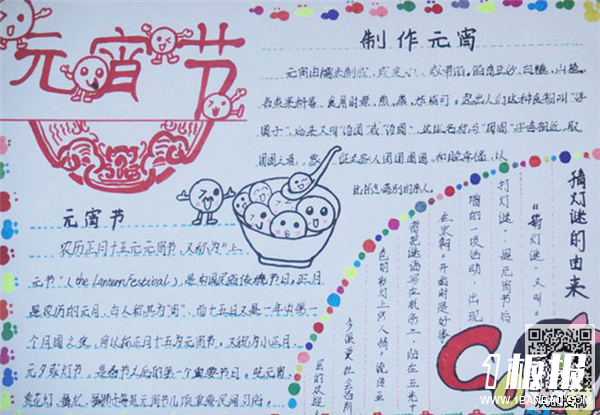 元宵节
制作元宵
元宵由糯米制成,或实心,或带馅。馅有豆沙、白糖、山楂、
各类果料等,食用时煮、煎、蒸、炸皆可。起初,人们这种食物叫“浮
圆子”,后来又叫“汤团”或“汤圆”,这些名称与“团圆”字音相近,取
团圆之意,象征全家人团团圆圆,和睦幸福,以
此怀念离别的亲人
元宵节
农历正月十五元元宵节,又称为“上
元节”(the Lantern Festival),是中国民俗传统节日。正月
是农历的元月,古人称其为“宵”,而十五日又是一年中第一
个月圆之夜,所以称正月十五为元宵节。又称为小正月、
元夕或灯节,是春节之后的第一个重要节日。吃元宵、
赏花灯、猜灯谜等是元宵节几项重要民间习俗。
猜灯谜的由来
“猜灯谜”又叫“
打灯谜”,是元宵节后
增的一项活动,出现
在宋朝。开始时是好事
者把谜语写在纸条上,贴在五光十
色的彩灯上供人猜。
1板报
WWW.1BANBAO.COM